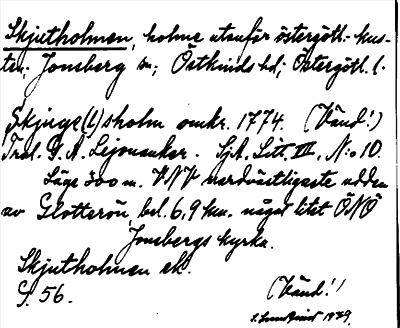 Skjutholmen, holme utanför östergötl.- kus-
ten; Jonsberg sn; Östkinds hd; Östergötl. l.
Skjuge(l)sholm omkr. 1774. (Vänd!)
G. A. Lejonanker. Sjk. Litt. III. N:o 10.
Läge 300 m. VNV nordvästligaste udden
av Glotterön, bel. 6,9 km. något litet ÖNÖ
Jonsbergs kyrka.
Skjutholmen ek.
S. 56.
(Vänd!)
1929.